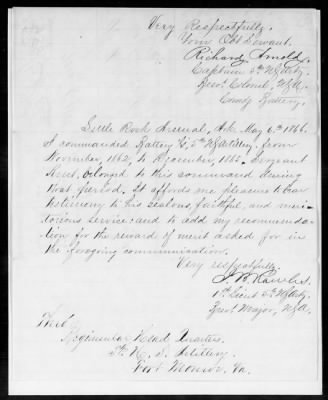 Very Respectfully,
Your Obt Servant,
Richard Arnold,
Captain 5th US Arty,
Brevt Colonel, USA.
Comdg Battery.
Little Rock Arsenal, Ark. May 6th 1866.
I commanded Battery "G", 5th US Artillery, from
November, 1862, to December, 1865. Sergeant
belonged to this command during
that period. It affords me pleasure to bear
testimony to his zealous, faithful, and meri-
torious service: and to add my recommenda-
tion for the reward of merit asked for in
the foregoing communication.
Very respectfully,
J. B. Rawles.
1st Lieut 5th US Arty,
Brevt Major, USA.
Regimental Head Quarters.
5th U. S. Artillery.
Fort Monroe, Va.